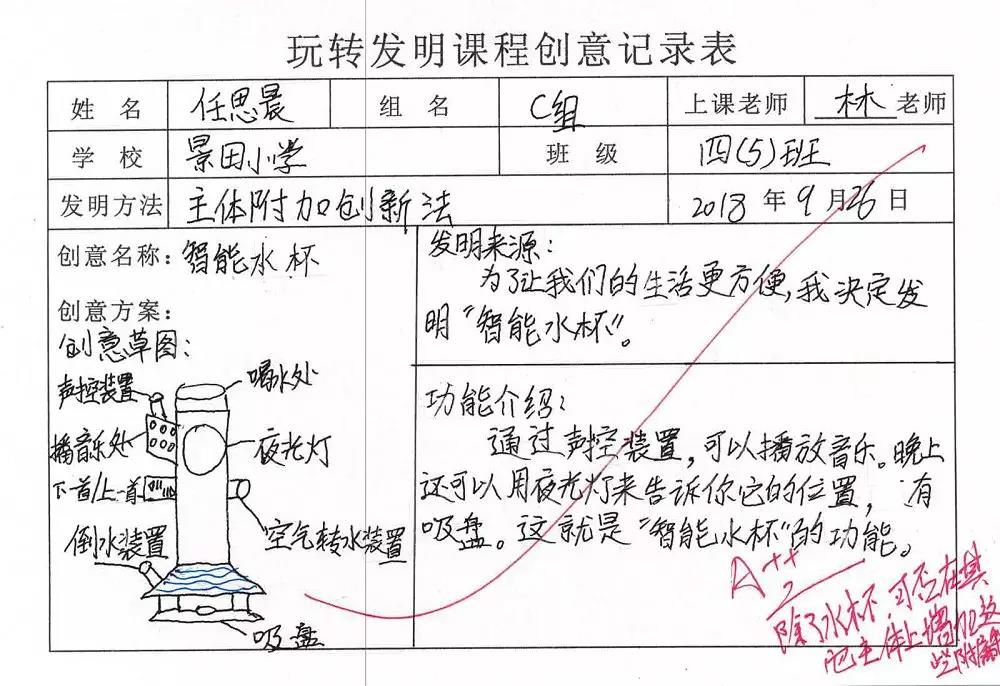 玩转发明课程创意记录表
姓 名 任思晨 组 名 C组 上课老师 林 老师
学 校 景田小学 班 级 四(5)班
发明方法 主体附加创新法 2018 年 9 月 26 日
创意名称：智能水杯
创意方案：
创意草图：
声控装置
喝水处
播音乐处
夜光灯
下一首/上一首
倒水装置
空气转水装置
吸盘
发明来源：
为了让我们的生活更方便,我决定发
明“智能水杯”。
功能介绍：
通过声控装置,可以播放音乐。晚上
还可以用夜光灯来告诉你它的位置,有
吸盘。这就是“智能水杯”的功能。
A++
除了水杯,可否在其
它主体上增加这
些附属